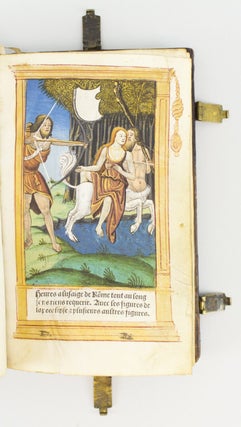 Heures a lusaige de Rõme tout au long
sans riens requerir. Auec les figures de
lapocalipse ⁊ plusieurs aultres figures.